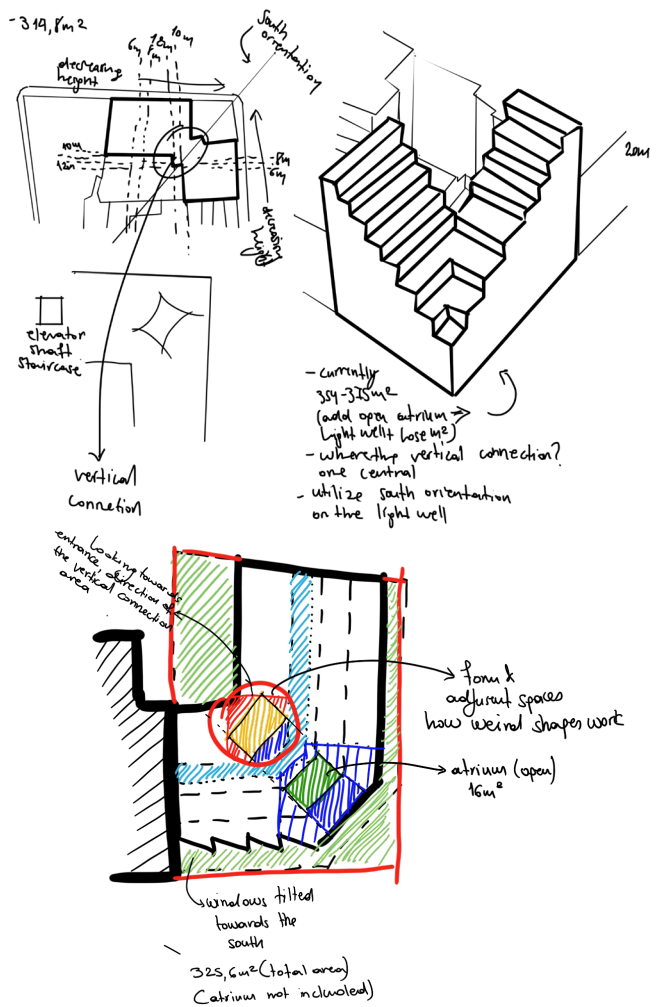 -319,8m²
6m
8m
12m
10m
South
orientation
decreasing
height
10m
12m
8m
6m
decreasing
height
20m
elevator
shaft
staircase
vertical
connetion
- currently
354-375m²
(add open atrium →
light well + lose m²)
vertical connection?
one central
- utilize south orientation
on the light well
Looking towards
entrance, direction of
the vertical connection
area
form &
adjusent spaces
how weird shapes work
atrium (open)
16m²
windows tilted
towards the
south
325,6m² (total area)
(atrium not included)